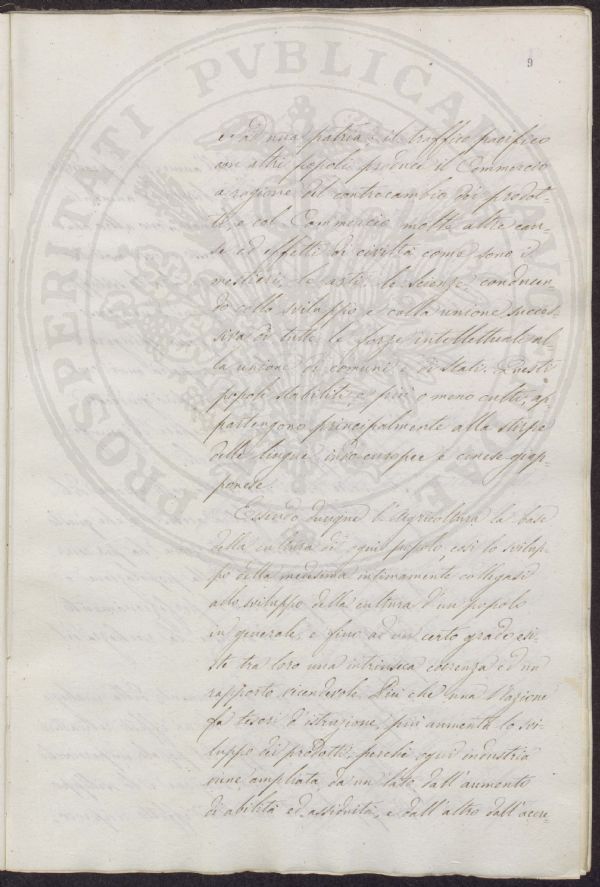 PROSPERITATI PVBLICAE AVGENDAE
9
e ad una patria: il traffico pacifico
con altri popoli produce il Commercio
a ragione del controcambio dei prodot-
ti, e col Commercio molte altre cau-
se ed effetti di civiltà come sono i
mestieri, le arti, le scienze, conducen-
do collo sviluppo e colla unione succes-
siva di tutte le forze intellettuali al-
la unione di comuni e di Stati. Questi
popoli stabiliti, e più o meno culti, ap-
partengono principalmente alla stirpe
delle lingue indo-europee e cinese-giap-
ponese.
Essendo dunque l'Agricoltura la base
della cultura di ogni popolo, così lo svilup-
po della medesima intimamente collegasi
allo sviluppo della cultura d'un popolo
in generale, e fino ad un certo grado esi-
ste tra loro una intrinseca coerenza ed un
rapporto vicendevole. Più che una Nazione
fa tesori d'istruzione, più aumenta lo svi-
luppo dei prodotti, perchè ogni industria
viene ampliata da un lato dall'aumento
di abilità ed assiduità, e dall'altro dall'accre-